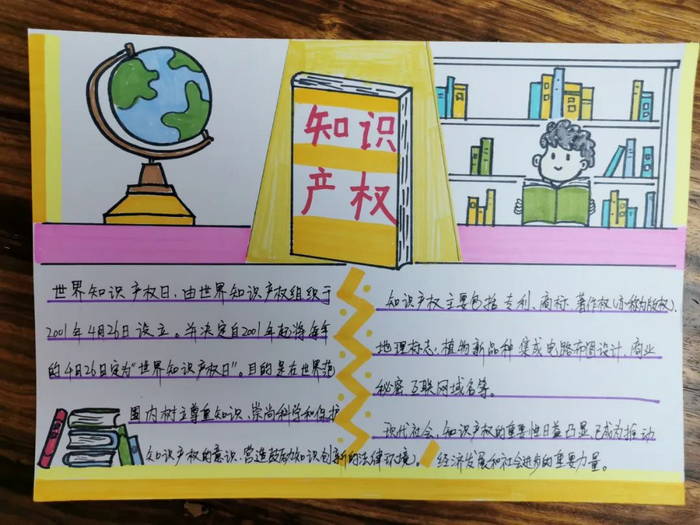 知识
产权
世界知识产权日,由世界知识产权组织于
2001年4月26日设立。并决定自2001年起将每年
的4月26日定为“世界知识产权日”。目的是在世界范
围内树立尊重知识、崇尚科学和保护
知识产权的意识、营造鼓励知识创新的法律环境。
知识产权主要包括专利、商标、著作权(亦称为版权)、
地理标志、植物新品种、集成电路布图设计、商业
秘密、互联网域名等。
现代社会,知识产权的重要性日益凸显,已成为推动
经济发展和社会进步的重要力量。